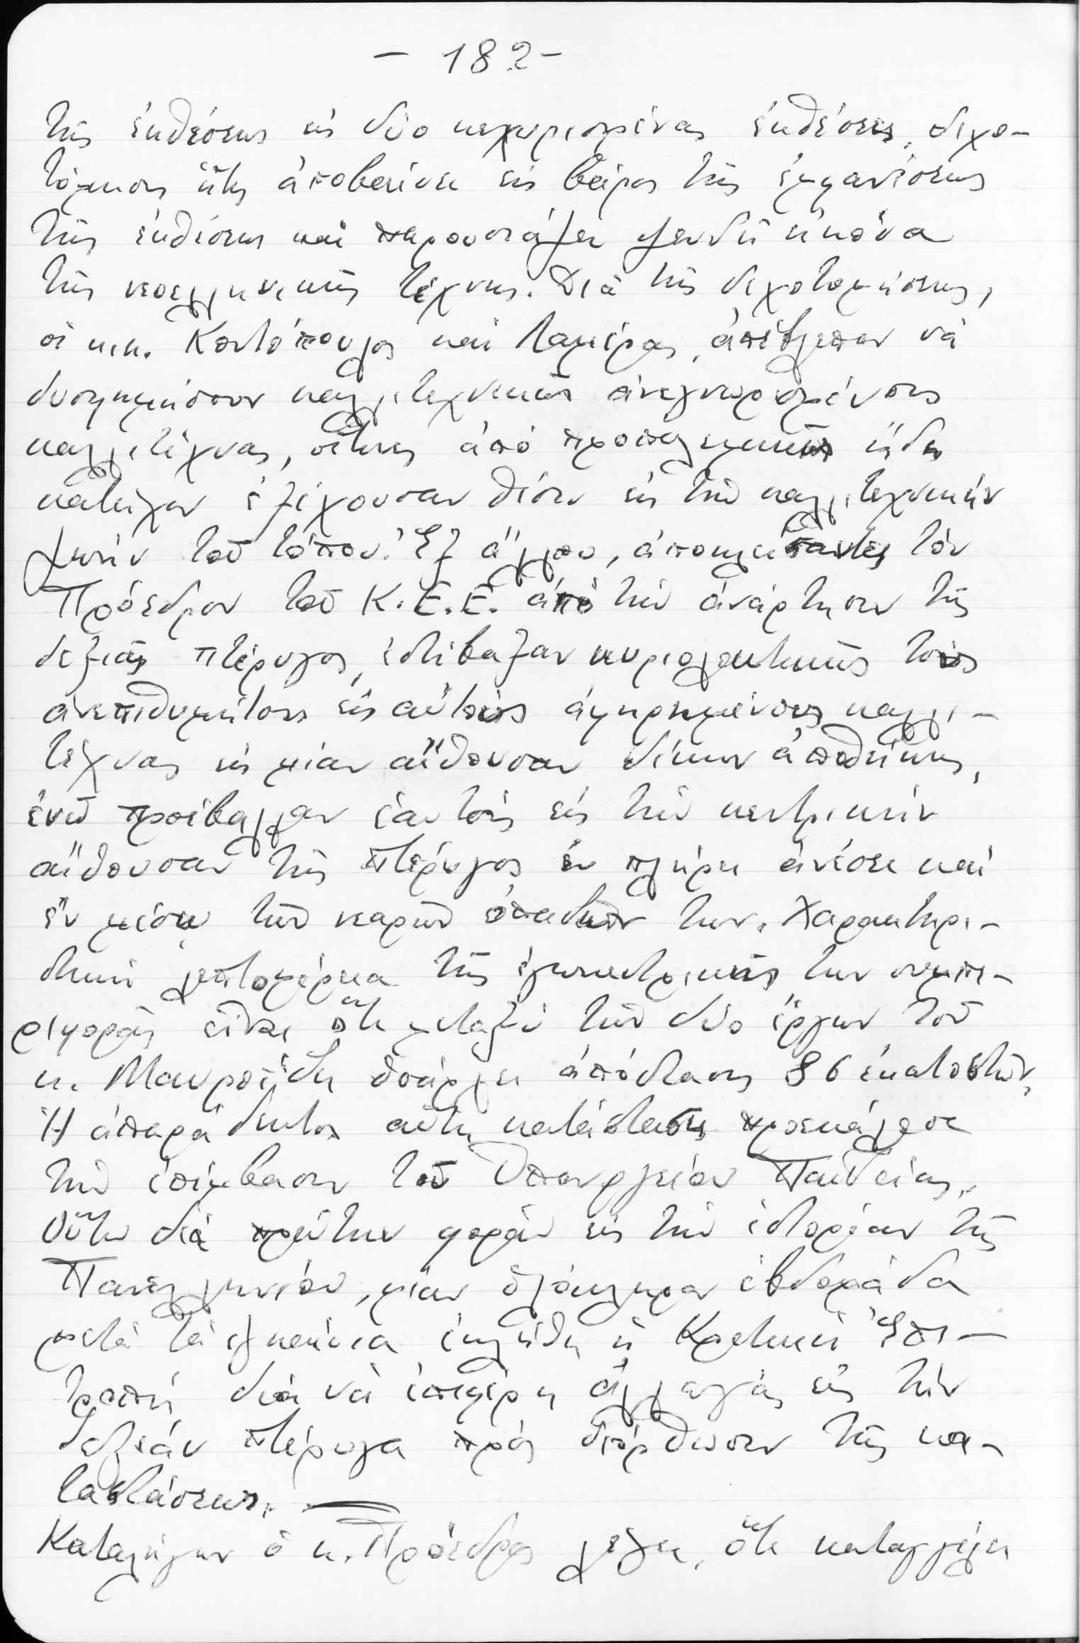 - 182 -
τῆς ἐκθέσεως εἰς δύο κεχωρισμένας ἐκθέσεις, διχο-
τόμησις ἥτις ἀποβαίνει εἰς βάρος τῆς ἐμφανίσεως
τῆς ἐκθέσεως καὶ παρουσιάζει ψευδῆ εἰκόνα
τῆς νεοελληνικῆς τέχνης. Διὰ τῆς διχοτομήσεως,
οἱ κ.κ. Κοντόπουλος καὶ Λαμέρας, ἀπέβλεπαν νὰ
δυσφημήσουν καλλιτεχνικῶς ἀνεγνωρισμένους
καλλιτέχνας, οἵτινες ἀπὸ προπολεμικῶς ἤδη
κατεῖχον ἐξέχουσαν θέσιν εἰς τὴν καλλιτεχνικὴν
ζωὴν τοῦ τόπου. Ἐξ ἄλλου, ἀποκλείσαντες τὸν
Πρόεδρον τοῦ Κ.Ε.Ε. ἀπὸ τὴν ἀνάρτησιν τῆς
δεξιᾶς πτέρυγος, ἐστίβαξαν κυριολεκτικῶς τοὺς
ἀνεπιθυμήτους εἰς αὐτοὺς ἀφηρημένους καλλι-
τέχνας εἰς μίαν αἴθουσαν δίκην ἀποθήκης,
ἐνῶ προέβαλλαν ἑαυτοὺς εἰς τὴν κεντρικὴν
αἴθουσαν τῆς πτέρυγος ἐν πλήρει ἀνέσει καὶ
ἐν μέσῳ τῶν νεαρῶν ὀπαδῶν των. Χαρακτηρι-
στικὴ λεπτομέρεια τῆς ἐγωκεντρικῆς των συμπε-
ριφορᾶς εἶναι ὅτι μεταξὺ τῶν δύο ἔργων τοῦ
κ. Μαυροΐδη ὑπάρχει ἀπόστασις 86 ἑκατοστῶν.
Ἡ ἀπαράδεκτος αὕτη κατάστασις προεκάλεσε
τὴν ἐπέμβασιν τοῦ Ὑπουργείου Παιδείας.
Οὕτω διὰ πρώτην φορὰν εἰς τὴν ἱστορίαν τῆς
Πανελληνίου, μίαν ὁλόκληρον ἑβδομάδα
μετὰ τὰ ἐγκαίνια ἐκλήθη ἡ Κριτικὴ Ἐπι-
τροπὴ διὰ νὰ ἐπιφέρῃ ἀλλαγὰς εἰς τὴν
δεξιὰν πτέρυγα πρὸς διόρθωσιν τῆς κα-
ταστάσεως. —
Καταλήγων ὁ κ. Πρόεδρος λέγει, ὅτι καταγγέλει